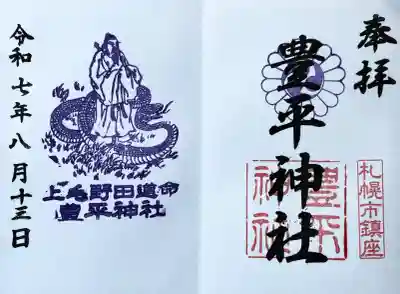 奉拝
豊平神社
札幌市鎮座
豊平
神社
上毛野田道命
豊平神社
令和七年八月十三日